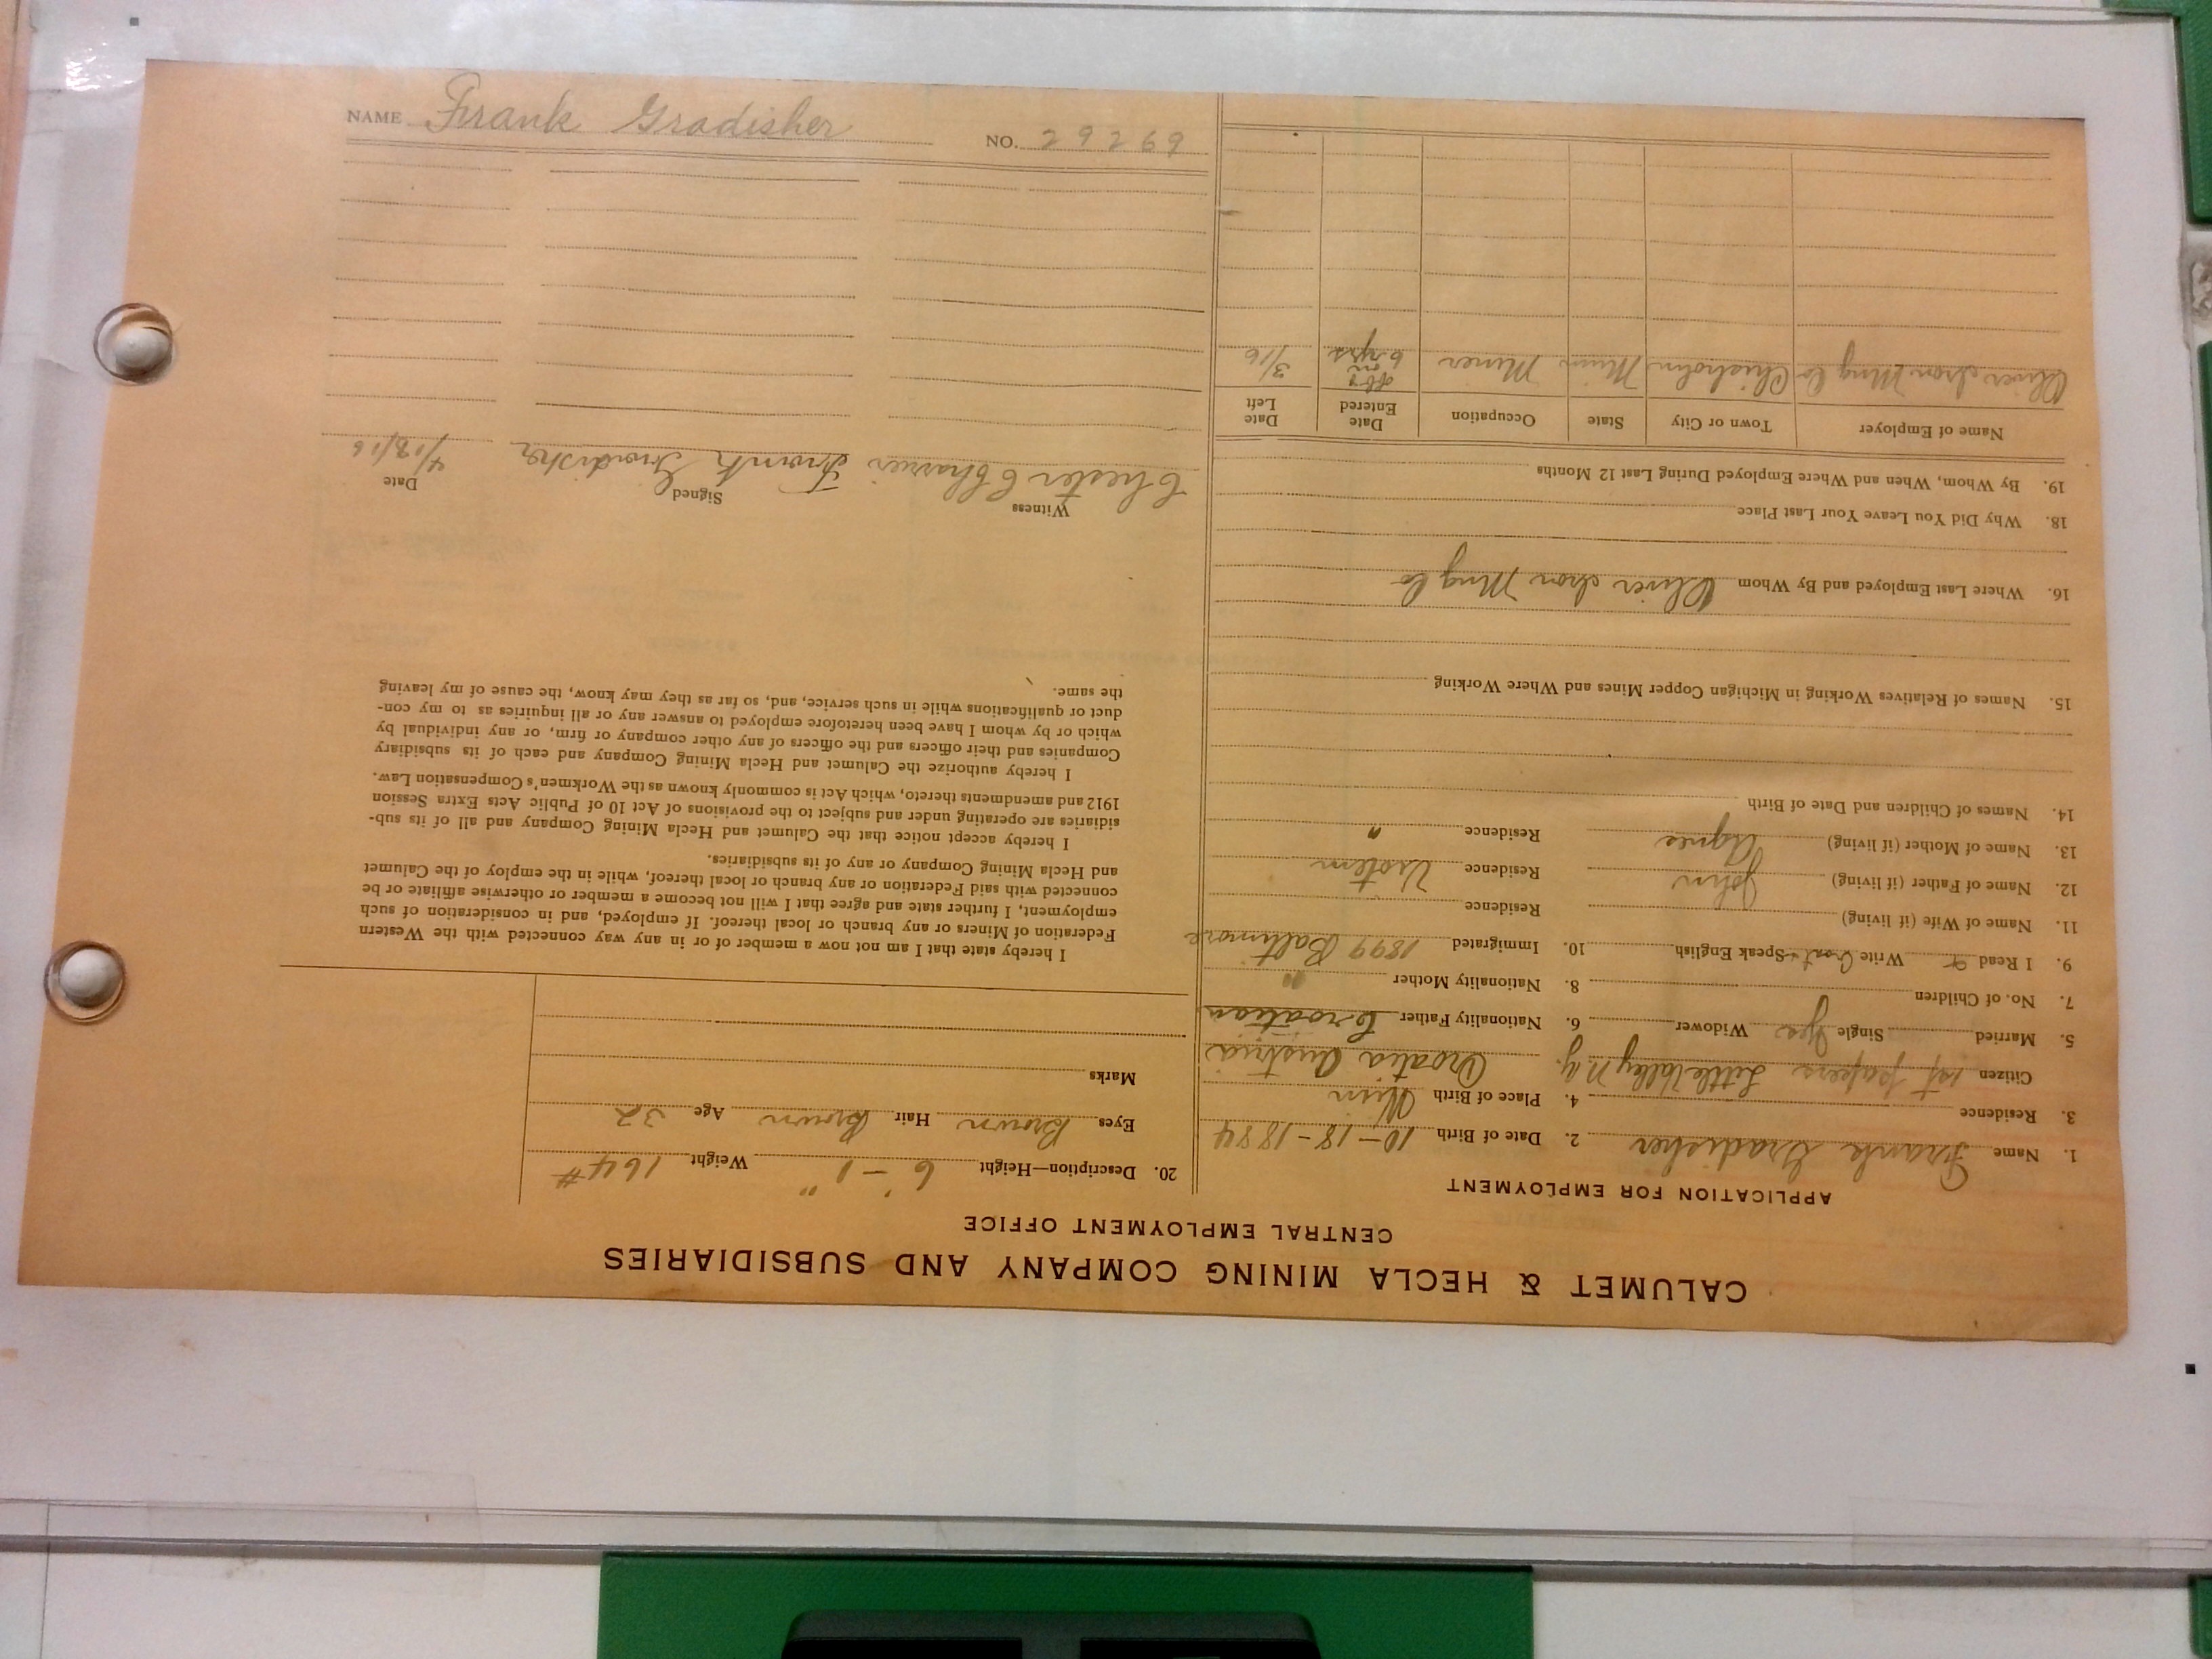 NAME Frank Gradisher NO. 29269
CALUMET & HECLA MINING COMPANY AND SUBSIDIARIES
CENTRAL EMPLOYMENT OFFICE
APPLICATION FOR EMPLOYMENT
1. Name Frank Gradisher 2. Date of Birth 10-18-1884
3. Residence 4. Place of Birth
Citizen 1st papers Little Valley N.Y. Croatia Austria
5. Married Single Yes Widower 6. Nationality Father Croatian
7. No. of Children 8. Nationality Mother "
9. I Read Write Croat Speak English 10. Immigrated 1899 Baltimore
11. Name of Wife (if living) Residence
12. Name of Father (if living) John Residence
13. Name of Mother (if living) Agnes Residence "
14. Names of Children and Date of Birth
15. Names of Relatives Working in Michigan Copper Mines and Where Working
16. Where Last Employed and By Whom Oliver Iron Mng Co
18. Why Did You Leave Your Last Place
19. By Whom, When and Where Employed During Last 12 Months
Name of Employer Town or City State Occupation Date Entered Date Left
Oliver Iron Mng Co Chisholm Minn Miner off & on 6 yrs 3/16
20. Description—Height 6'-1" Weight 164#
Eyes Brown Hair Brown Age 32
Marks
I hereby state that I am not now a member of or in any way connected with the Western
Federation of Miners or any branch or local thereof. If employed, and in consideration of such
employment, I further state and agree that I will not become a member or otherwise affiliate or be
connected with said Federation or any branch or local thereof, while in the employ of the Calumet
and Hecla Mining Company or any of its subsidiaries.
I hereby accept notice that the Calumet and Hecla Mining Company and all of its sub-
sidiaries are operating under and subject to the provisions of Act 10 of Public Acts Extra Session
1912 and amendments thereto, which Act is commonly known as the Workmen's Compensation Law.
I hereby authorize the Calumet and Hecla Mining Company and each of its subsidiary
Companies and their officers and the officers of any other company or firm, or any individual by
which or by whom I have been heretofore employed to answer any or all inquiries as to my con-
duct or qualifications while in such service, and, so far as they may know, the cause of my leaving
the same.
Witness Signed Date
Chester C Frank Gradisher 4/18/16